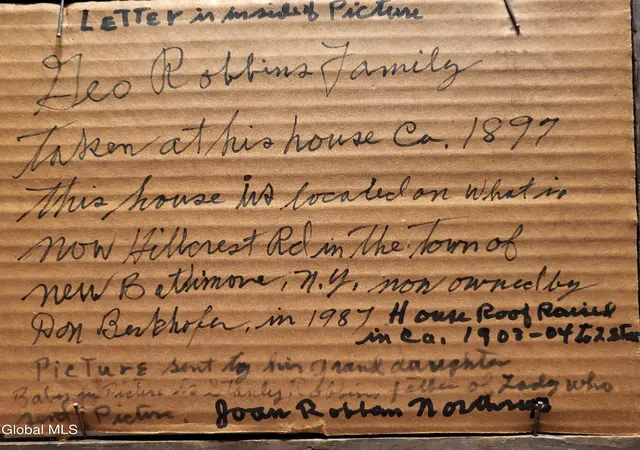 LETTER is inside of Picture
Geo Robbins Family
taken at his house Ca. 1897
this house is located on what is
now Hillcrest Rd in the town of
new Baltimore, N.Y. now owned by
Don Berkhofer, in 1987 House Roof Raised
in Ca. 1903-04 to 2 Stor
Picture sent by his grand daughter
Baby in Picture is Stanley Robbins father of Lady who
sent Picture. Joan Robbins Northrup
Global MLS